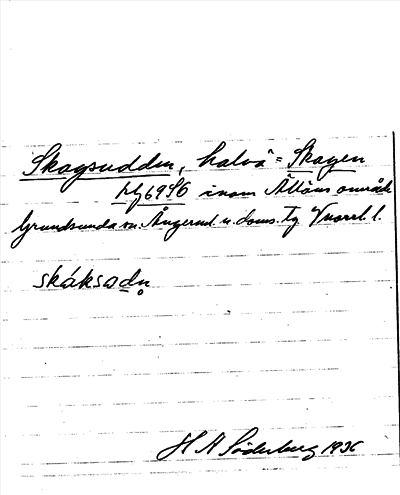 Skagsudden, halvö = Skagen
hfg 6956 inom Ällöns område
Grundsunda sn. Ångerml. n. doms. tg Vnorrl. l.
skáksɷdn̥
H A Söderberg 1936